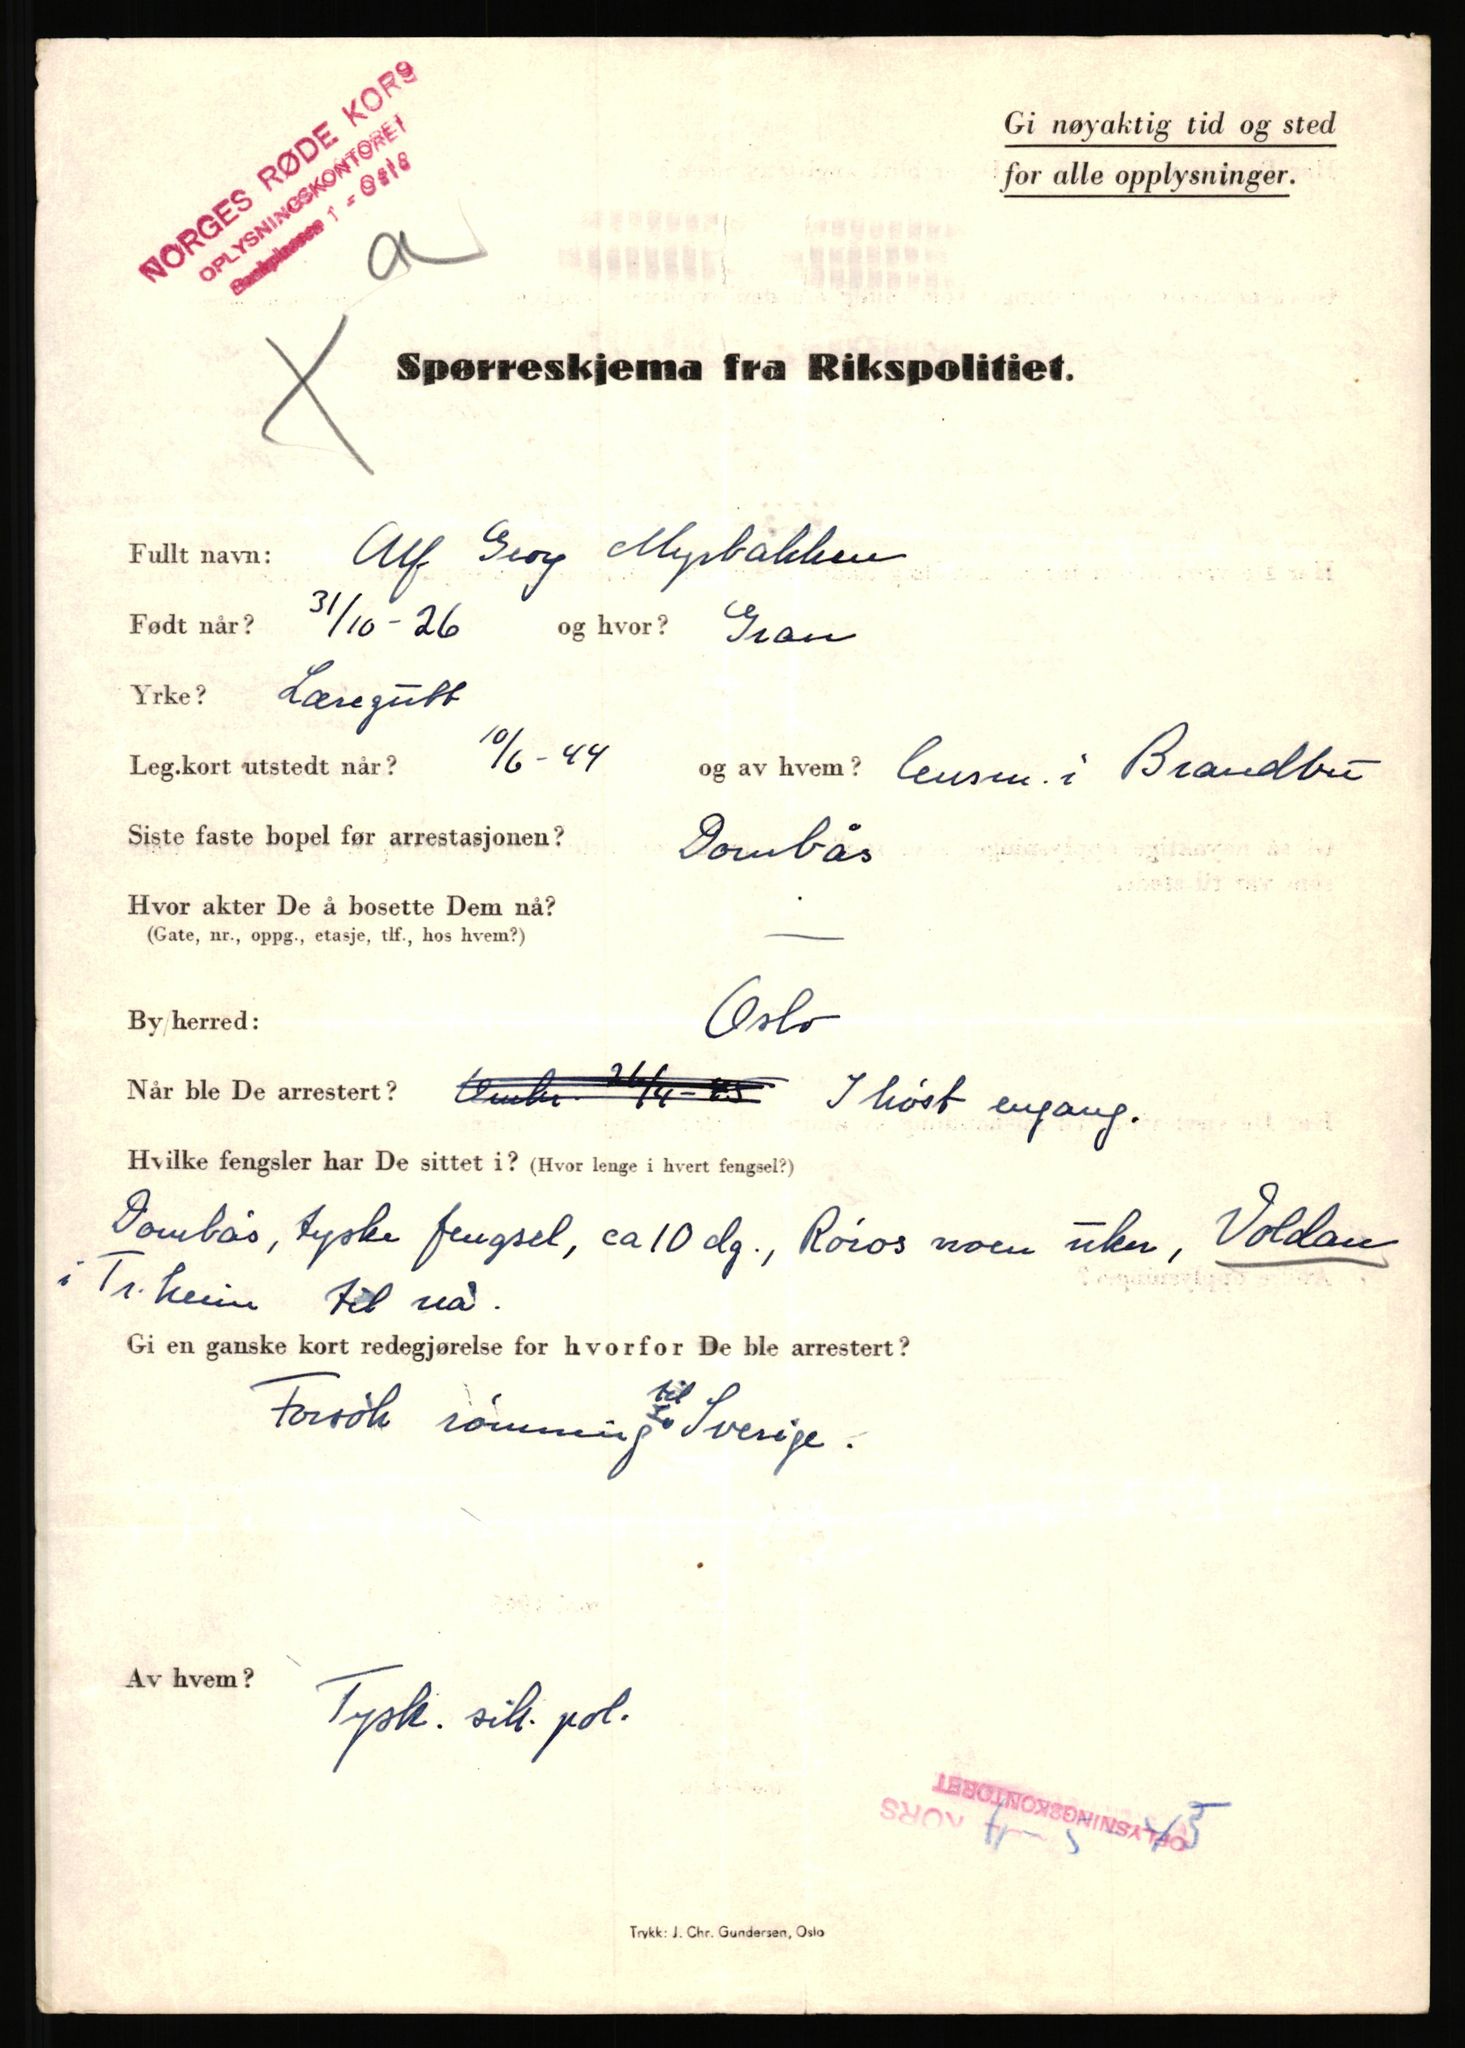 NORGES RØDE KORS
OPLYSNINGSKONTORET
1 - Oslo
Gi nøyaktig tid og sted
for alle opplysninger.
a
Spørreskjema fra Rikspolitiet.
Fullt navn: Alf Georg Myrbakken
Født når? 31/10-26 og hvor? Gran
Yrke? Læregutt
Leg.kort utstedt når? 10/6-44 og av hvem? lensm. i Brandbu
Siste faste bopel før arrestasjonen? Dombås
Hvor akter De å bosette Dem nå? —
(Gate, nr., oppg., etasje, tlf., hos hvem?)
By/herred: Oslo
Når ble De arrestert? 26/4-45 I høst engang.
Hvilke fengsler har De sittet i? (Hvor lenge i hvert fengsel?)
Dombås, tyske fengsel, ca 10 dg., Röros noen uker, Voldan
i Tr.heim til nå.
Gi en ganske kort redegjørelse for hvorfor De ble arrestert?
Forsök römning til Sverige.
Av hvem? Tysk. sik. pol.
OPLYSNINGSKONTORET
KORS
45
Trykk: J. Chr. Gundersen, Oslo